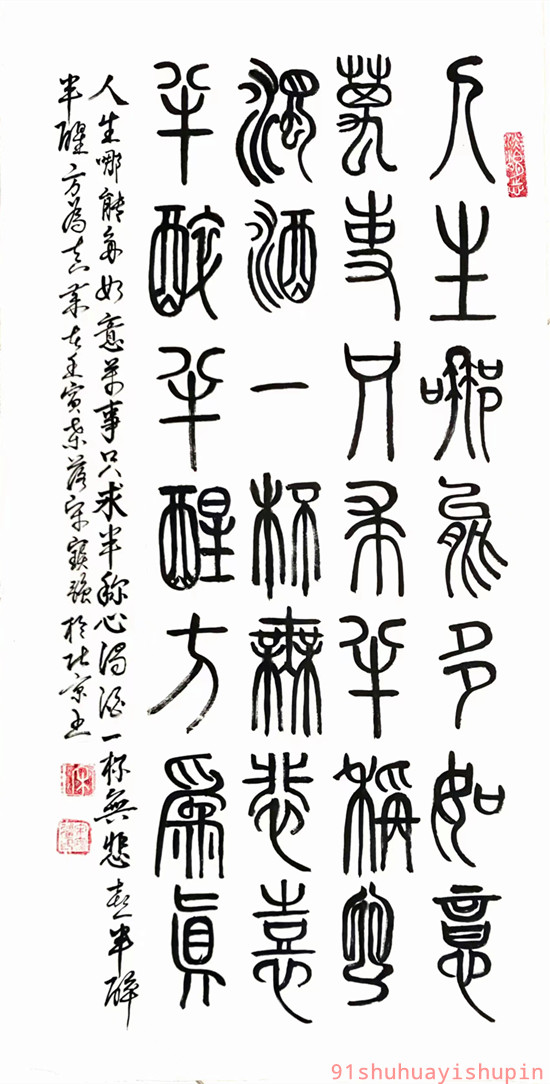 人生哪能多如意
萬事只求半稱心
濁酒一杯無悲喜
半醉半醒方為真
人生哪能多如意萬事只求半称心濁酒一杯無悲喜半醉
半醒方為真 壬寅 宋寶強於北京
91shuhuayishupin